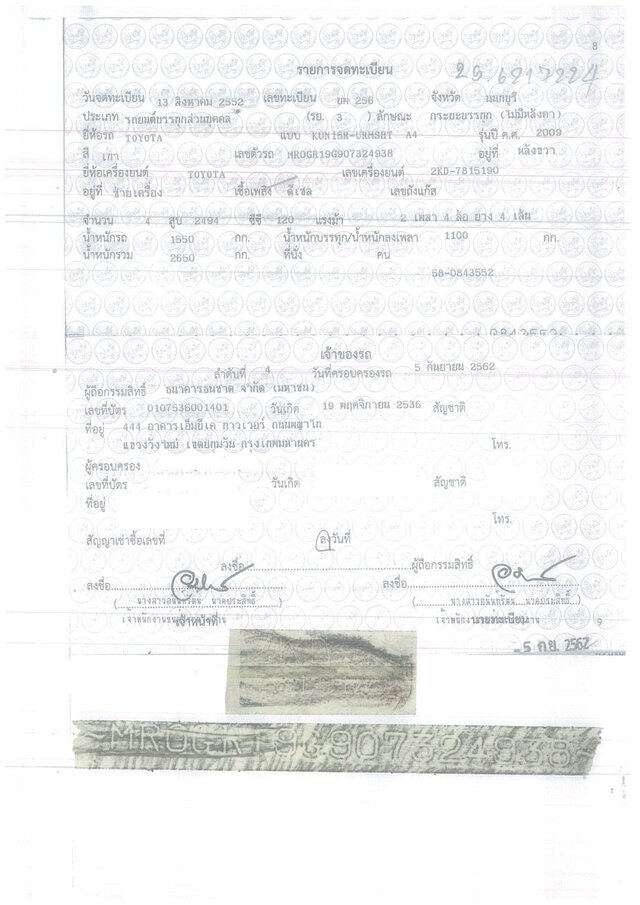 8
รายการจดทะเบียน
25 6817224
วันจดทะเบียน 13 สิงหาคม 2552 เลขทะเบียน บพ 256 จังหวัด นนทบุรี
ประเภท รถยนต์บรรทุกส่วนบุคคล (รย. 3 ) ลักษณะ กระบะบรรทุก (ไม่มีหลังคา)
ยี่ห้อรถ TOYOTA แบบ KUN15R-URMSHT A4 รุ่นปี ค.ศ. 2009
สี เทา เลขตัวรถ MR0GR19G907324938 อยู่ที่ หลังขวา
ยี่ห้อเครื่องยนต์ TOYOTA เลขเครื่องยนต์ 2KD-7815190
อยู่ที่ ซ้ายเครื่อง เชื้อเพลิง ดีเซล เลขถังแก๊ส
จำนวน 4 สูบ 2494 ซีซี 120 แรงม้า 2 เพลา 4 ล้อ ยาง 4 เส้น
น้ำหนักรถ 1550 กก. น้ำหนักบรรทุก/น้ำหนักลงเพลา 1100 กก.
น้ำหนักรวม 2650 กก. ที่นั่ง คน
58-0843552
เจ้าของรถ
ลำดับที่ 4 วันที่ครอบครองรถ 5 กันยายน 2562
ผู้ถือกรรมสิทธิ์ ธนาคารธนชาต จำกัด (มหาชน)
เลขที่บัตร 0107536001401 วันเกิด 19 พฤศจิกายน 2536 สัญชาติ
ที่อยู่ 444 อาคารเอ็มบีเค ทาวเวอร์ ถนนพญาไท
แขวงวังใหม่ เขตปทุมวัน กรุงเทพมหานคร โทร.
ผู้ครอบครอง
เลขที่บัตร วันเกิด สัญชาติ
ที่อยู่
โทร.
สัญญาเช่าซื้อเลขที่ ลงวันที่
ลงชื่อ ผู้ถือกรรมสิทธิ์
ลงชื่อ ลงชื่อ
เจ้าหน้าที่ นายทะเบียน 9
-5 กย. 2562
MR0GR19G907324938